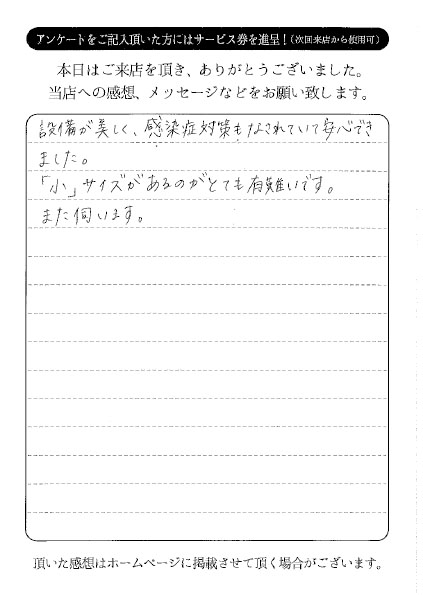 アンケートをご記入頂いた方にはサービス券を進呈！（次回来店から使用可）
本日はご来店を頂き、ありがとうございました。
当店への感想、メッセージなどをお願い致します。
設備が美しく、感染症対策もなされていて安心でき
ました。
「小」サイズがあるのがとても有難いです。
また伺います。
頂いた感想はホームページに掲載させて頂く場合がございます。